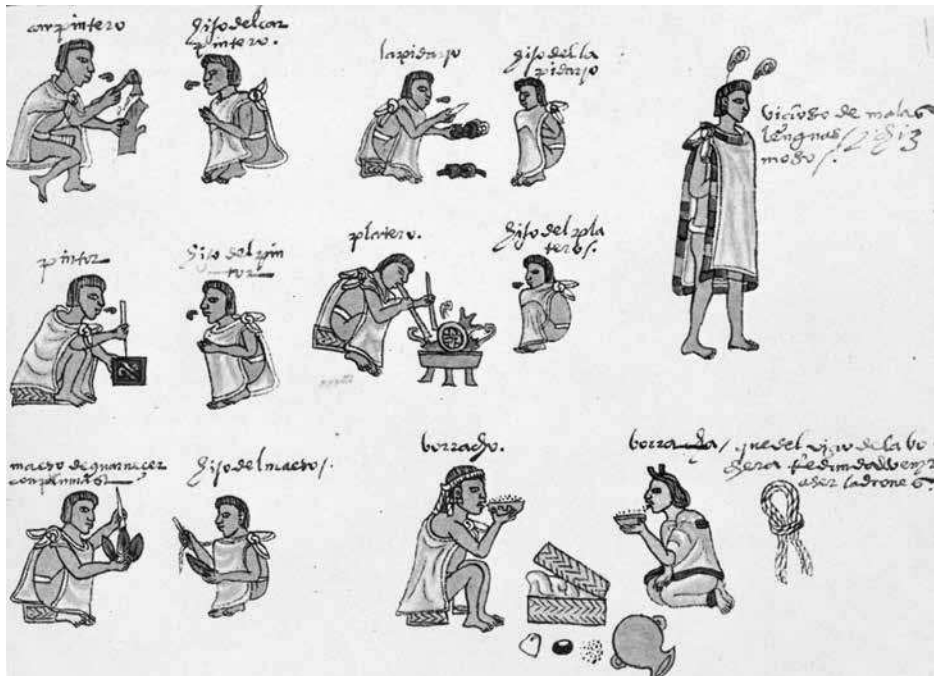 carpintero
hijo del car
pintero.
lapidario
hijo del la
pidario
vicioso de malas
lenguas / chis
moso /.
pintor
hijo del pin
tor
platero.
hijo del pla
tero /.
maeso de guarneçer
con plumas
hijo del maeso /.
borracho.
borracha / que del vicio de la bo
hera
a ser ladrones